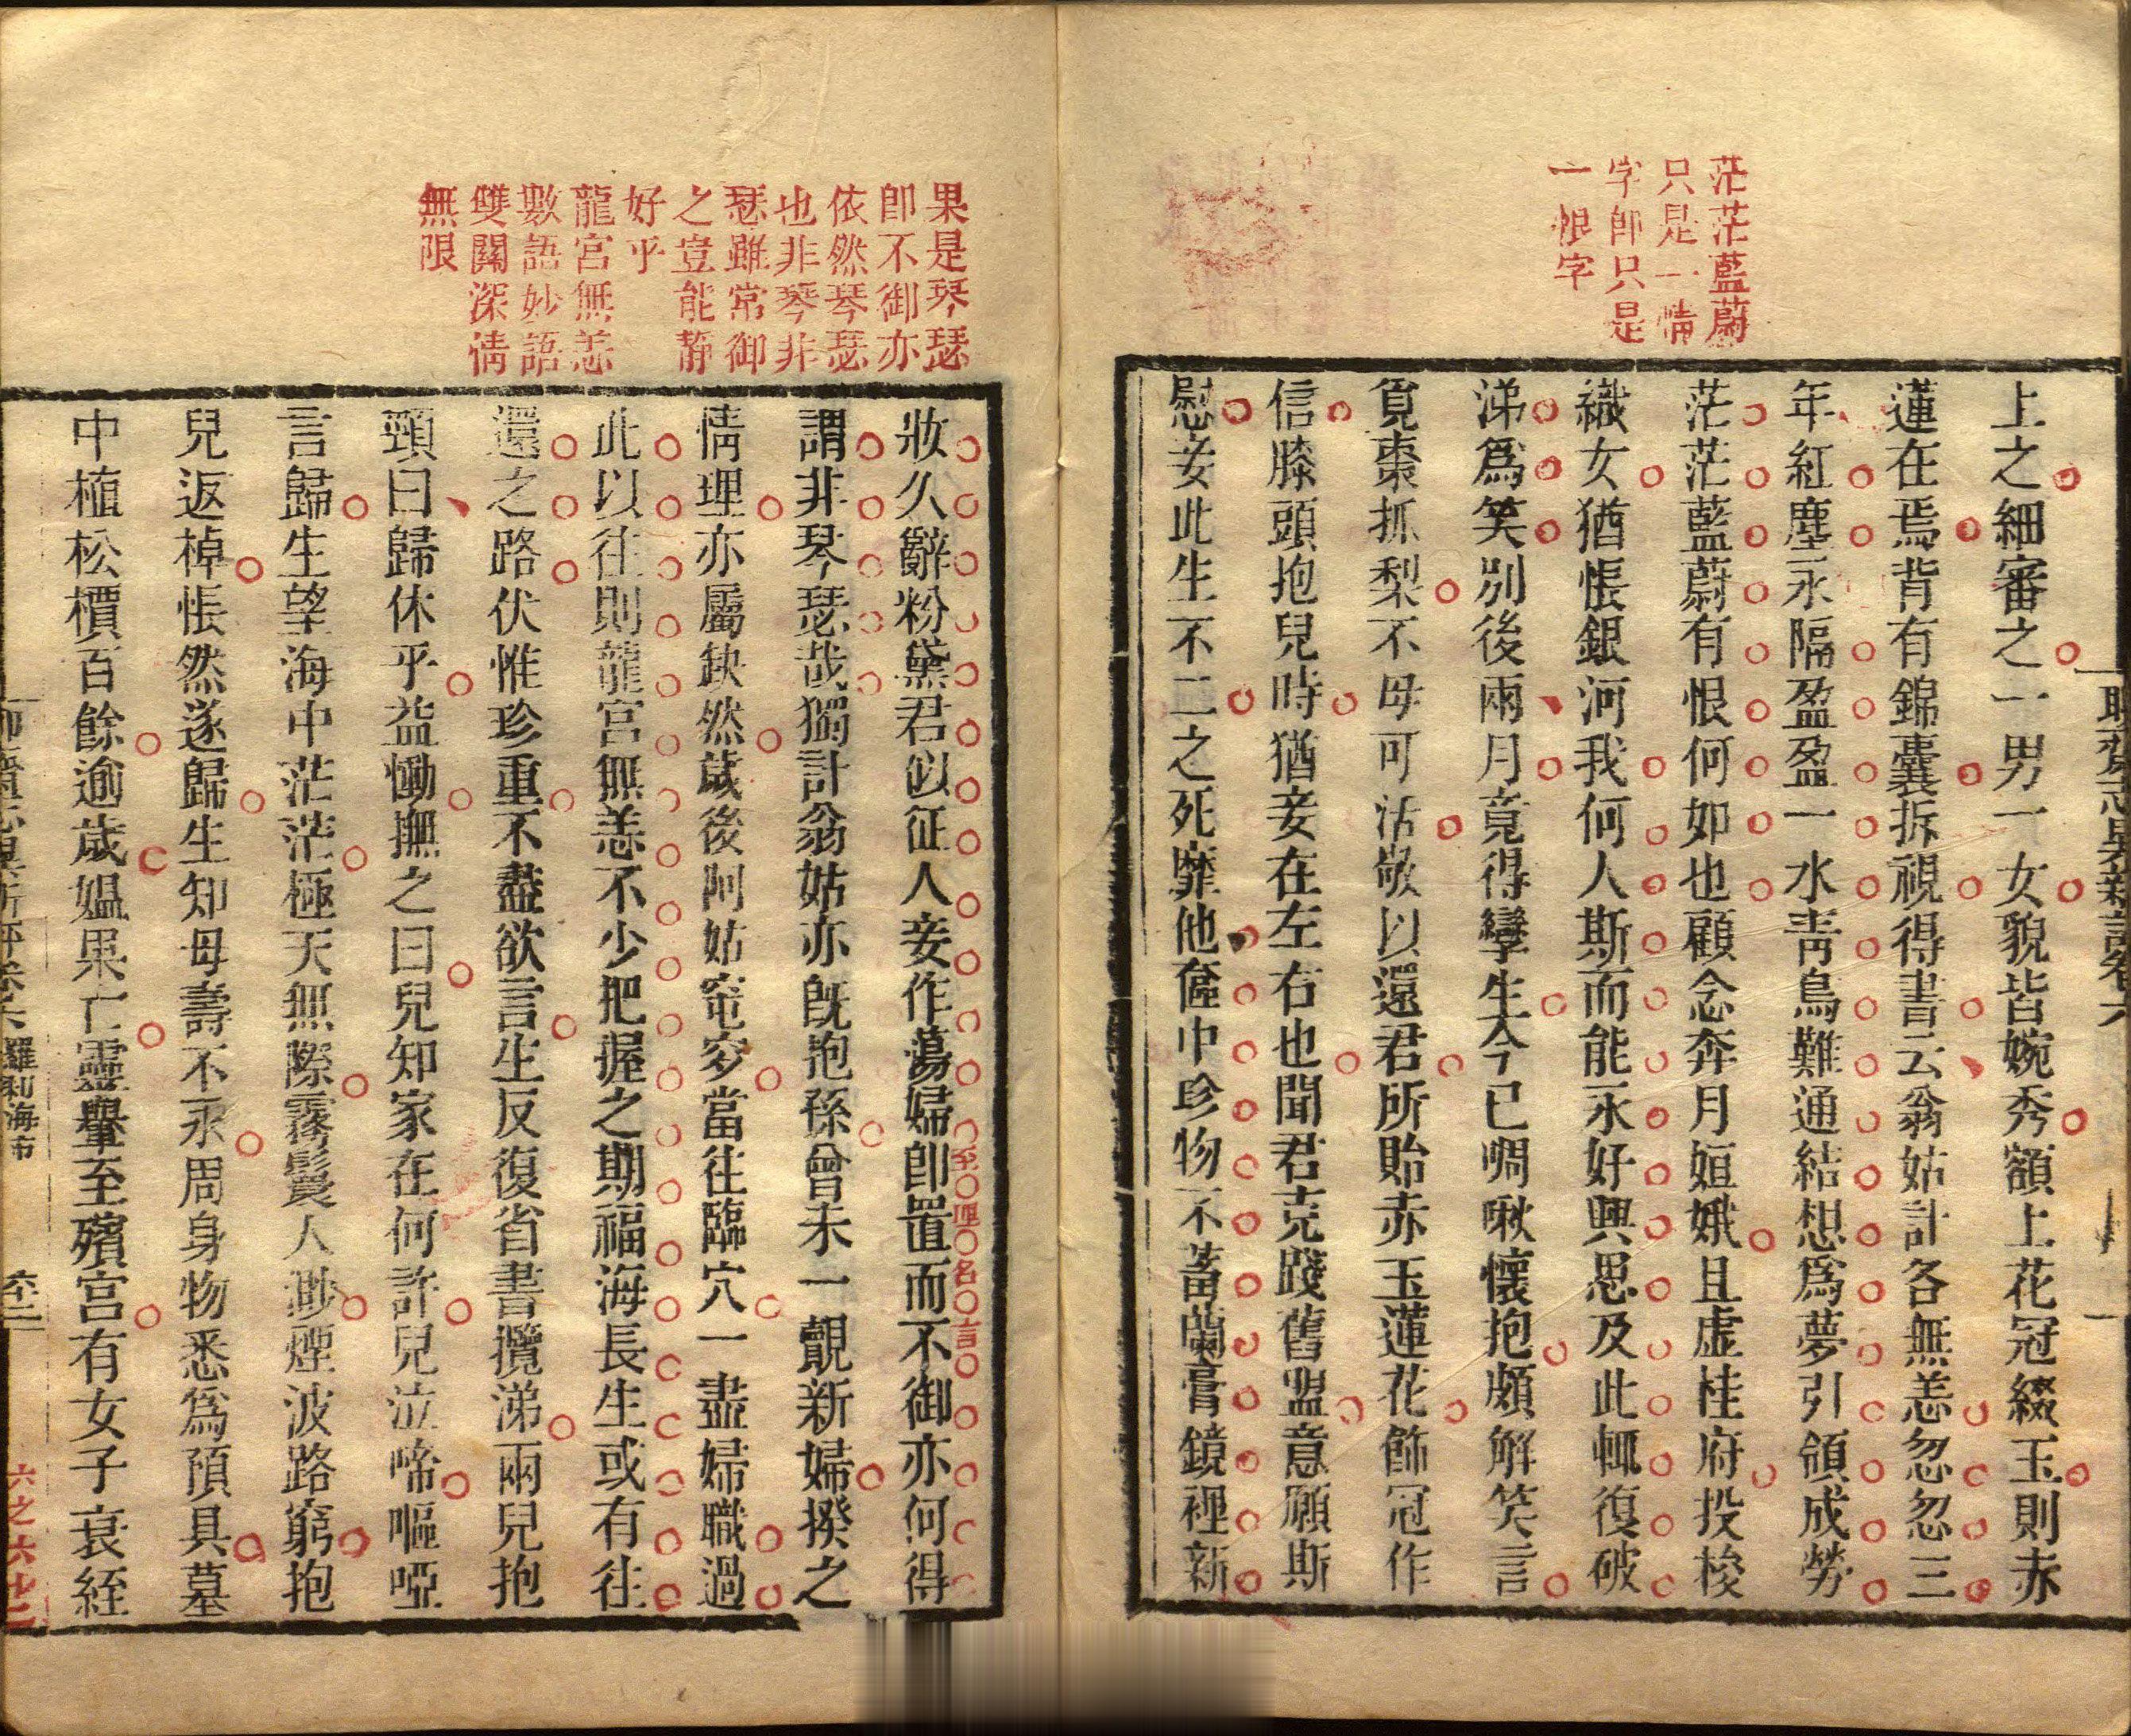 茫茫藍蔚
只是一情
字卽只是
一恨字
上之細審之一男一女貌皆婉秀額上花冠綴玉則赤
蓮在焉背有錦囊拆視得書云翁姑計各無恙忽忽三
年紅塵永隔盈盈一水靑鳥難通結想爲夢引領成勞
茫茫藍蔚有恨何如也顧念奔月姮娥且虛桂府投梭
織女猶悵銀河我何人斯而能永好興思及此輒復破
涕爲笑別後兩月竟得孿生今已啁啾懷抱頗解笑言
覓棗抓梨不母可活敬以還君所貽赤玉蓮花飾冠作
信膝頭抱兒時猶妾在左右也聞君克踐舊盟意願斯
慰妾此生不二之死靡他奩中珍物不蓄蘭膏鏡裡新
果是琴瑟
卽不御亦
依然琴瑟
也非琴非
瑟雖常御
之豈能靜
好乎
龍宮無恙
數語妙語
雙關深情
無限
妝久辭粉黛君似征人妾作蕩婦卽置而不御亦何得
至理名言
謂非琴瑟哉獨計翁姑亦旣抱孫曾未一覿新婦揆之
情理亦屬缺然歲後阿姑窀穸當往臨穴一盡婦職過
此以往則龍宮無恙不少把握之期福海長生或有往
還之路伏惟珍重不盡欲言生反復省書攬涕兩兒抱
頸曰歸休乎益慟撫之曰兒知家在何許兒泣啼嘔啞
言歸生望海中茫茫極天無際霧鬟人渺煙波路窮抱
兒返棹悵然遂歸生知母壽不永周身物悉爲預具墓
中植松檟百餘逾歲媼果亡靈轝至殯宮有女子衰絰
羅刹海市
六之六十二